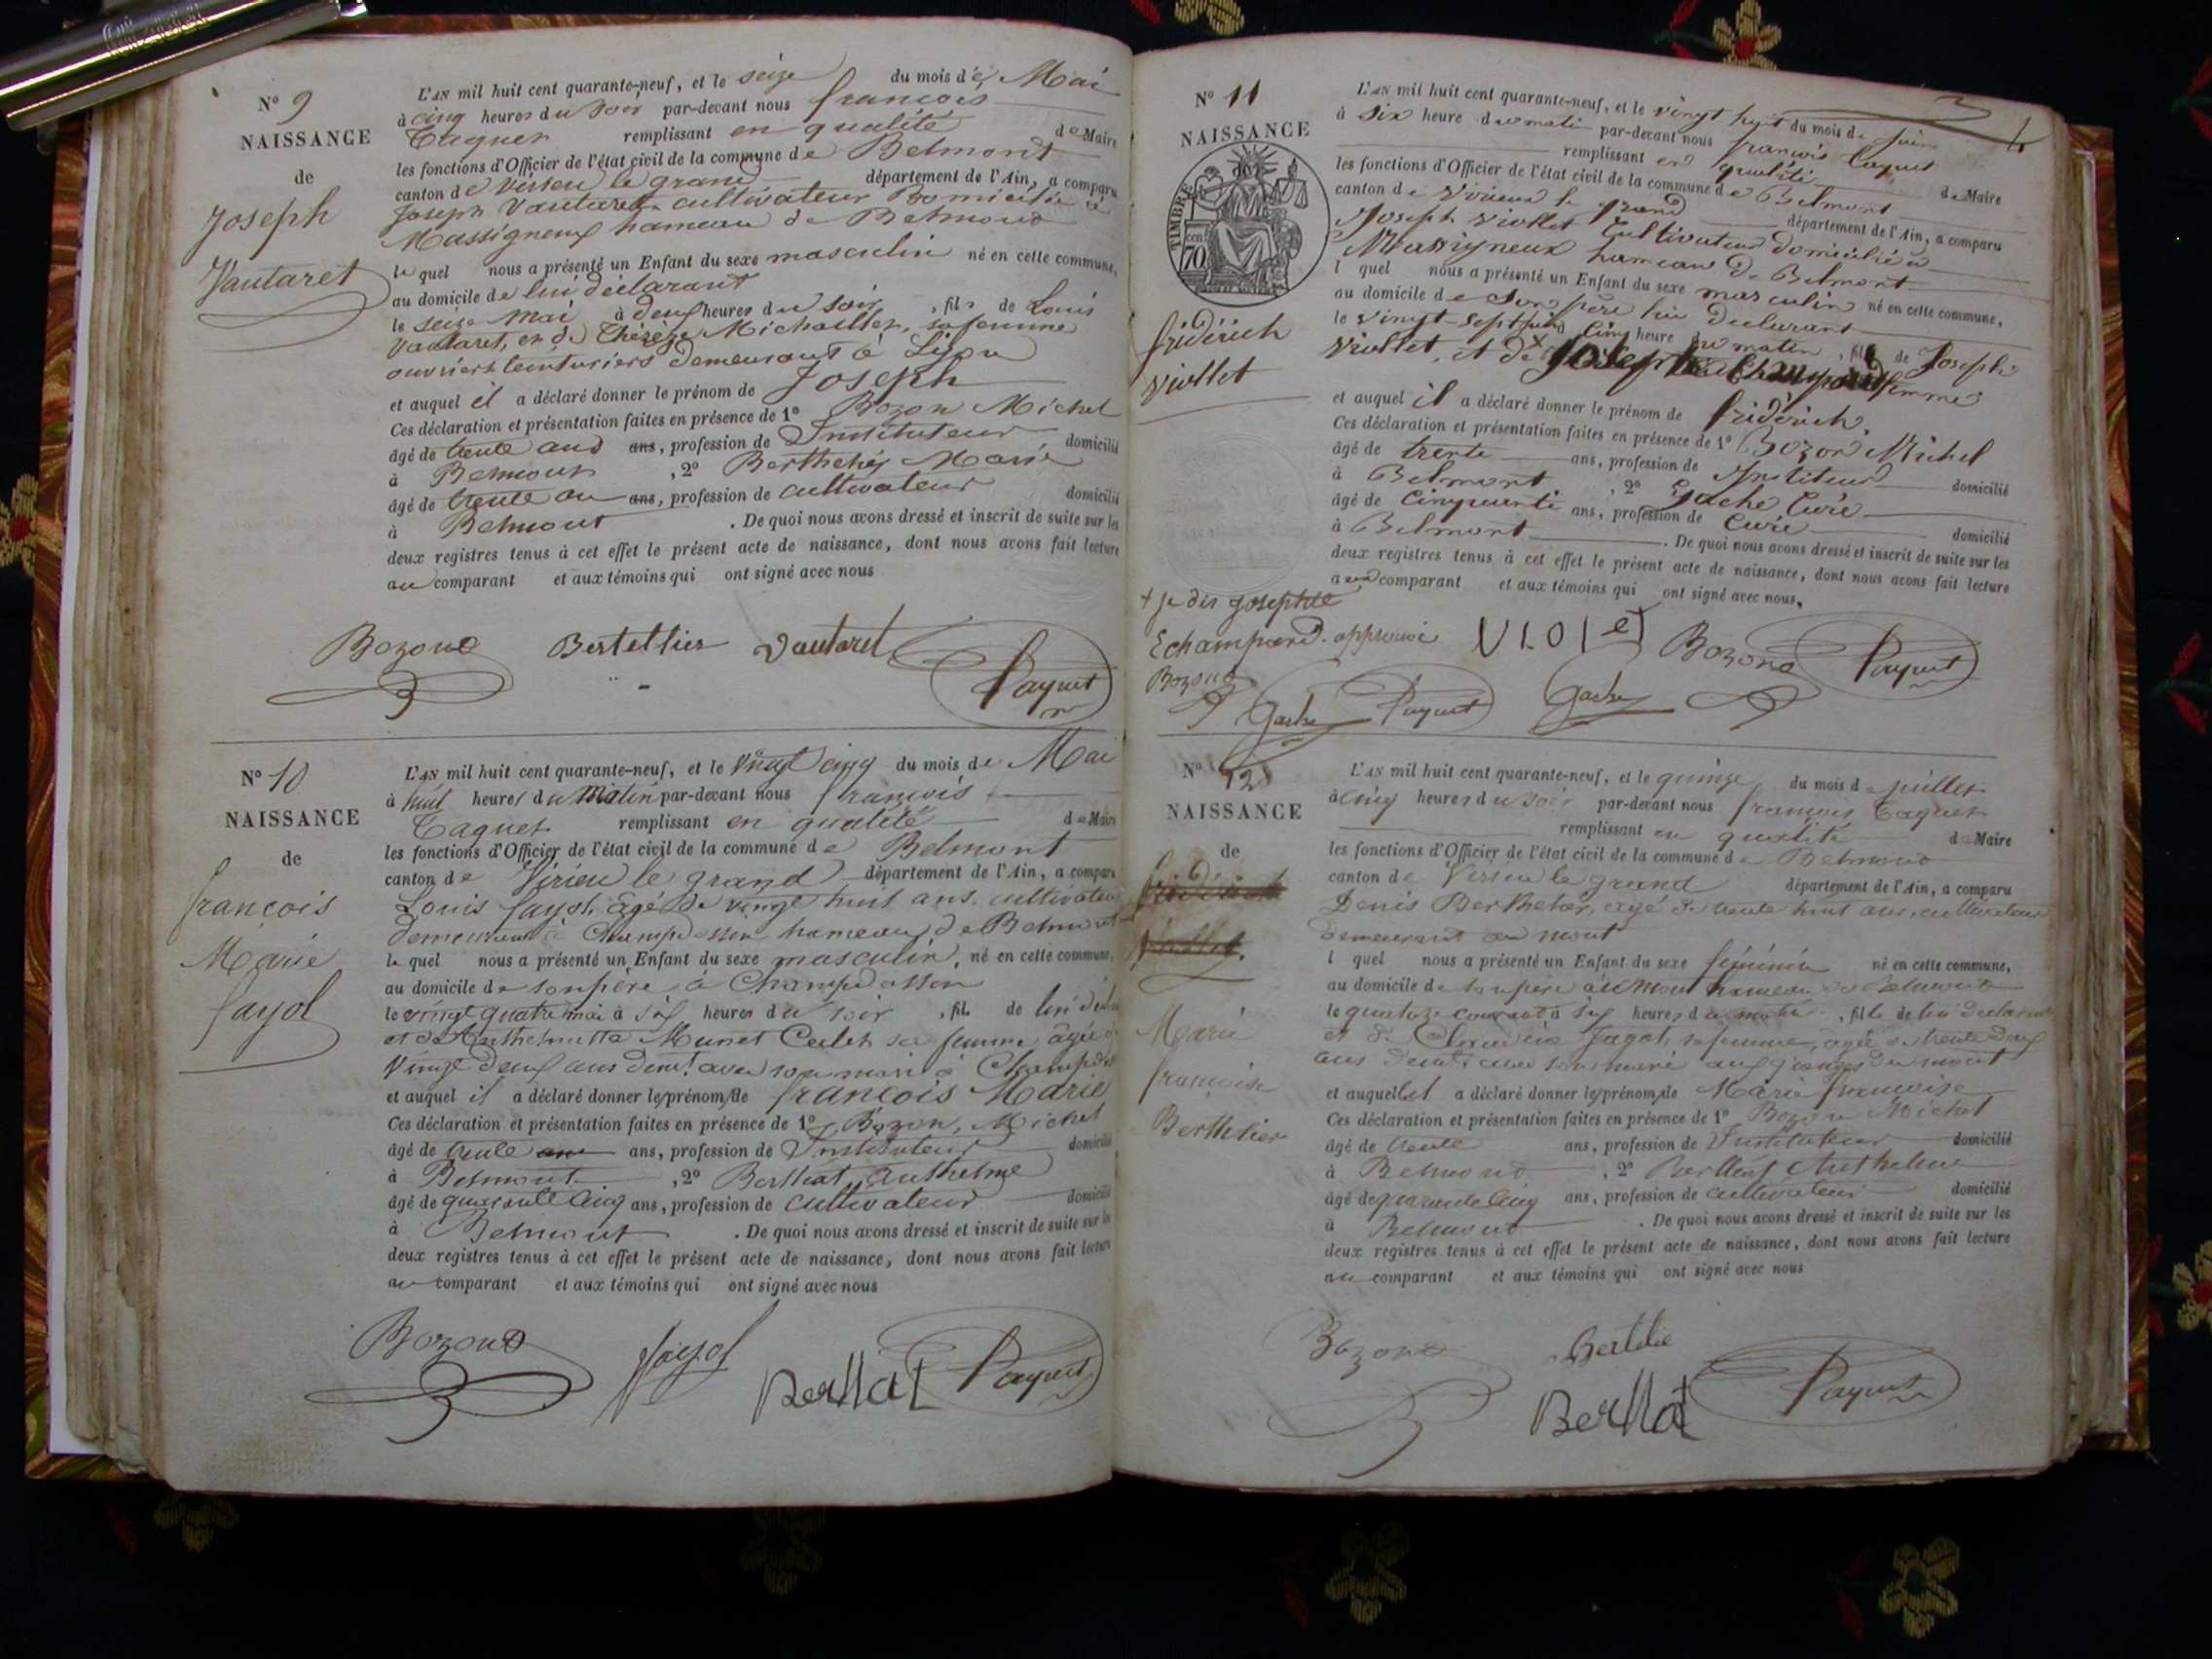 Nº 9
NAISSANCE
de
Joseph
Vautaret
L'AN mil huit cent quarante-neuf, et le seize du mois de Mai
à cinq heures du soir par-devant nous françois
Paquet remplissant en qualité de Maire
les fonctions d'Officier de l'état civil de la commune de Belmont
canton de virieu le grand département de l'Ain, a comparu
Joseph Vautaret cultivateur Domicilié à
Massigneux hameau de Belmond
le quel nous a présenté un Enfant du sexe masculin né en cette commune,
au domicile de lui déclarant
le seize Mai à deux heures du soir, fils de Louis
Vautaret, et de Thérèze Michallet, sa femme
ouvriers teinturiers demeurant à Lyon
et auquel il a déclaré donner le prénom de Joseph
Ces déclaration et présentation faites en présence de 1º Bozon Michel
âgé de trente ans ans, profession de Instituteur, domicilié
à Belmont, 2º Berthelier Marie
âgé de trente an ans, profession de cultivateur domicilié
à Belmont. De quoi nous avons dressé et inscrit de suite sur les
deux registres tenus à cet effet le présent acte de naissance, dont nous avons fait lecture
au comparant et aux témoins qui ont signé avec nous
Bozond Bertellier Vautaret Payuet
Nº 10
NAISSANCE
de
françois
Marie
fayol
L'AN mil huit cent quarante-neuf, et le Vingt cinq du mois de Mai
à huit heures du Matin par-devant nous françois
Paquet remplissant en qualité de Maire
les fonctions d'Officier de l'état civil de la commune de Belmont
canton de Virieu le grand département de l'Ain, a comparu
Louis fayol, âgé de vingt huit ans, cultivateur
demeurant à Champdossin hameau de Belmont
le quel nous a présenté un Enfant du sexe masculin, né en cette commune,
au domicile de son père à Champdossin
le vingt quatre mai à six heures du soir, fils de lui
et de Anthelmette Munet Carlet sa femme âgée
Vingt deux ans demt avec son mari à
et auquel il a déclaré donner les prénom de françois Marie
Ces déclaration et présentation faites en présence de 1º Bozon, Michel
âgé de trente ans ans, profession de Instituteur domicilié
à Belmont, 2º Berlliat, Anthelme
âgé de quarante Cinq ans, profession de cultivateur domicilié
à Belmont. De quoi nous avons dressé et inscrit de suite sur les
deux registres tenus à cet effet le présent acte de naissance, dont nous avons fait lecture
au comparant et aux témoins qui ont signé avec nous
Bozond fayol Berllat Payuet
Nº 11
NAISSANCE
TIMBRE
70
fridérich
viollet
L'AN mil huit cent quarante-neuf, et le vingt huit du mois de Juin
à six heure du matin par-devant nous françois Paquet
remplissant en qualité de Maire
les fonctions d'Officier de l'état civil de la commune de Belmont
canton de virieux le grand département de l'Ain, a comparu
Joseph viollet Cultivateur domicilié à
Massigneux hameau de Belmont
l quel nous a présenté un Enfant du sexe masculin né en cette commune,
au domicile de son père lui declarant
le vingt-sept juin Cinq heure du matin, fils de Joseph
viollet, et de Josephte Echampard femme
et auquel il a déclaré donner le prénom de fridérich.
Ces déclaration et présentation faites en présence de 1º Bozon Michel
âgé de trente ans, profession de Institeur domicilié
à Belmont, 2º Gache Curé
âgé de Cinquante ans, profession de Curé domicilié
à Belmont. De quoi nous avons dressé et inscrit de suite sur les
deux registres tenus à cet effet le présent acte de naissance, dont nous avons fait lecture
aux comparant et aux témoins qui ont signé avec nous,
+ je dis Josephte
Echampard. approuvé
Viollet Bozond Payuet
Bozond Gache Payuet Gache
Nº 12
NAISSANCE
de
fridérich
Viollet.
Marie
françoise
Berthelier
L'AN mil huit cent quarante-neuf, et le quinze du mois de juillet
à cinq heures du soir par-devant nous françois Paquet
remplissant en qualité de Maire
les fonctions d'Officier de l'état civil de la commune de Belmond
canton de Virieu le grand département de l'Ain, a comparu
Denis Berthelier, âgé de trente huit ans, cultivateur
demeurant au mont
l quel nous a présenté un Enfant du sexe féminin né en cette commune,
au domicile de son père au Mont hameau de Belmond
le quatorze courant à six heures du matin, fille de lui déclarant
et de Claudine Jagot, sa femme, âgée de trente deux
ans demt avec son mari aux granges du mont
et auquel il a déclaré donner les prénom de Marie françoise
Ces déclaration et présentation faites en présence de 1º Bozon Michel
âgé de trente ans, profession de Instituteur domicilié
à Belmond, 2º Berlliat Anthelme
âgé de quarante Cinq ans, profession de cultivateur domicilié
à Belmond. De quoi nous avons dressé et inscrit de suite sur les
deux registres tenus à cet effet le présent acte de naissance, dont nous avons fait lecture
au comparant et aux témoins qui ont signé avec nous
Bozond Bertelie
Berllat Payuet